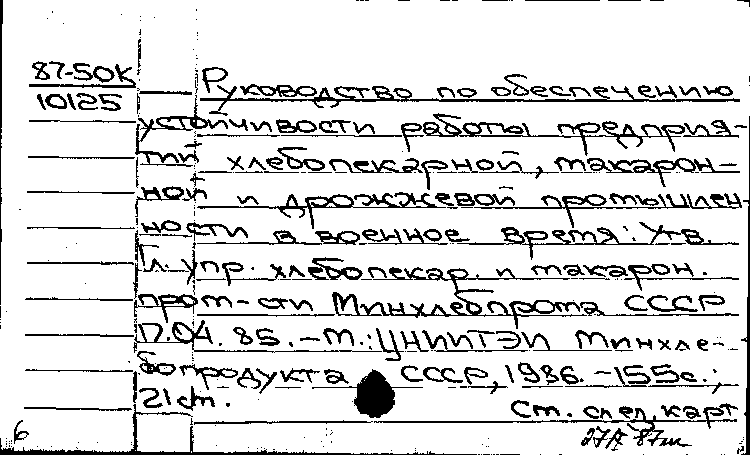 87-50К
10125
Руководство по обеспечению
устойчивости работы предприя-
тий хлебопекарной, макарон-
ной и дрожжевой промышлен-
ности в военное время: Утв.
Гл. упр. хлебопекар. и макарон.
пром-сти Минхлебпрота СССР
17.04.85.-М.: ЦНИИТЭИ Минхле-
бопродукта СССР, 1986.-155с.;
21см.
Ст. след. карт
6